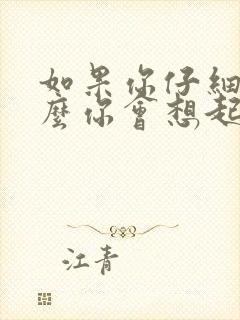 如果你仔細
麼你會想起
江青